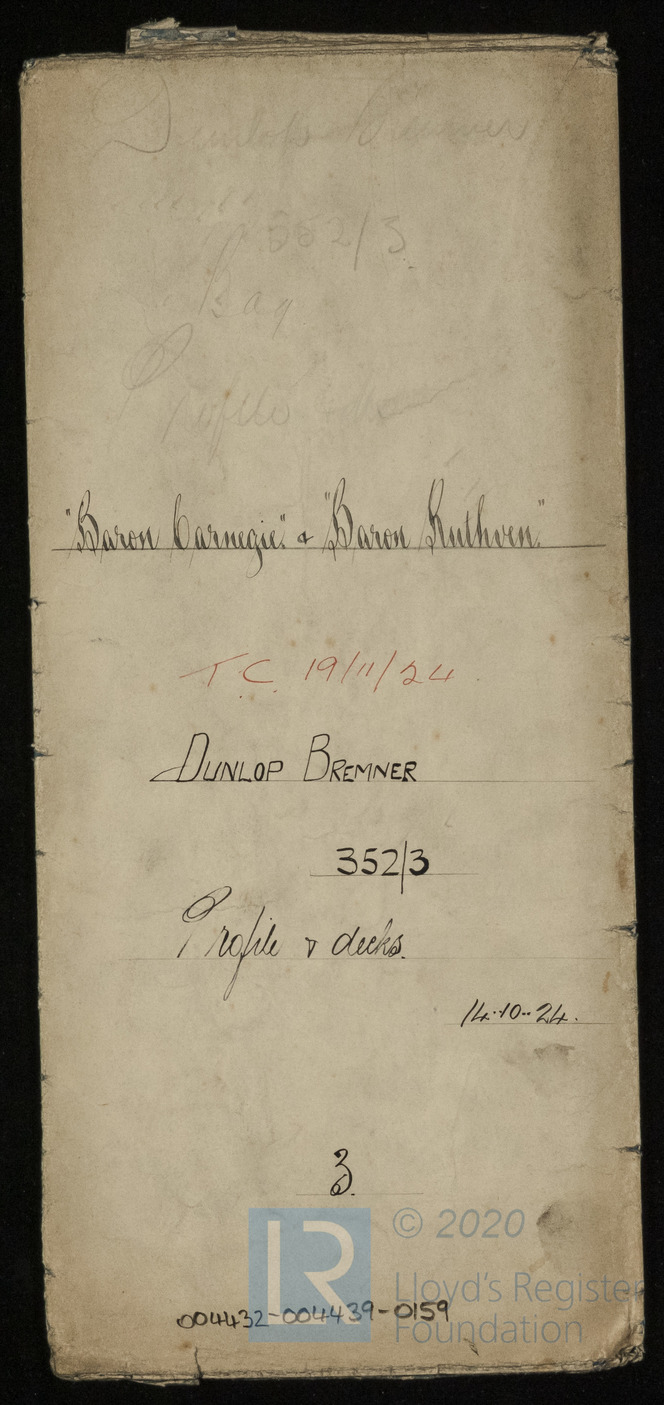 Dunlop Bremner
352/3
Bag
Profile
"Baron Carnegie" & "Baron Ruthven"
T.C. 19/11/24
DUNLOP BREMNER
352/3
Profile & decks.
14.10.24.
3.
LR
© 2020
Lloyd's Register
Foundation
004432-004439-0159